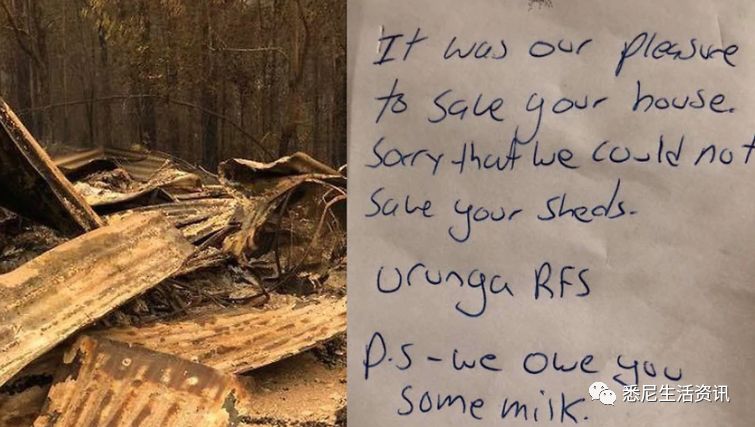 It was our pleasure
to save your house.
Sorry that we could not
save your sheds.
Urunga RFS
P.S - we owe you
some milk.
悉尼生活资讯